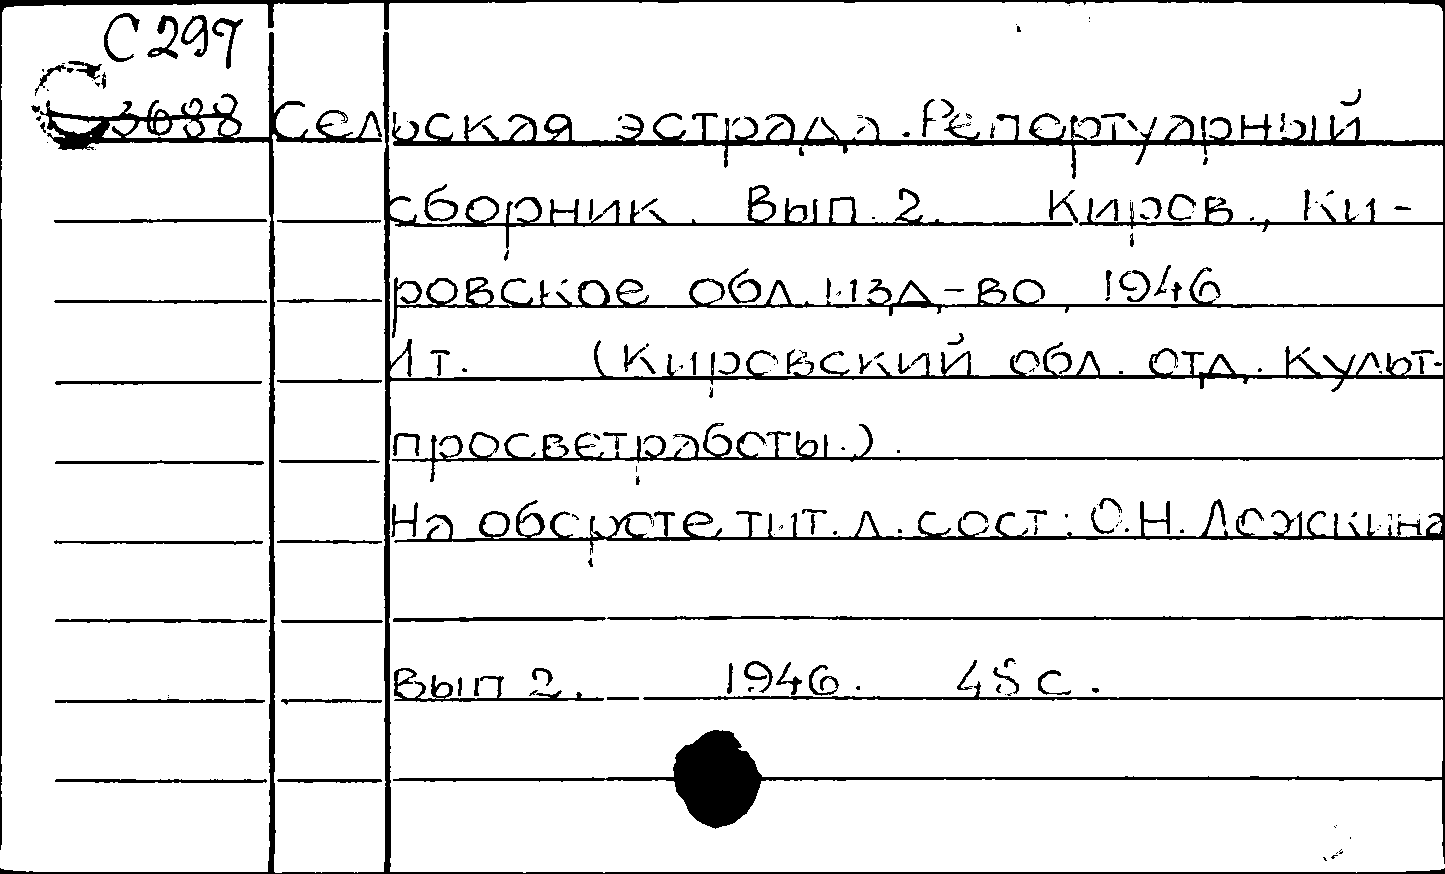 С 297
С 3688
Сельская эстрада. Репортуарный
сборник. Вып. 2. Киров., Ки-
ровское обл. изд,-во, 1946
1 т. (Кировский обл. отд. Культ-
просветработы.).
На обороте тит. л. сост: О.Н. Ложкина
Вып 2. 1946. 48 с.